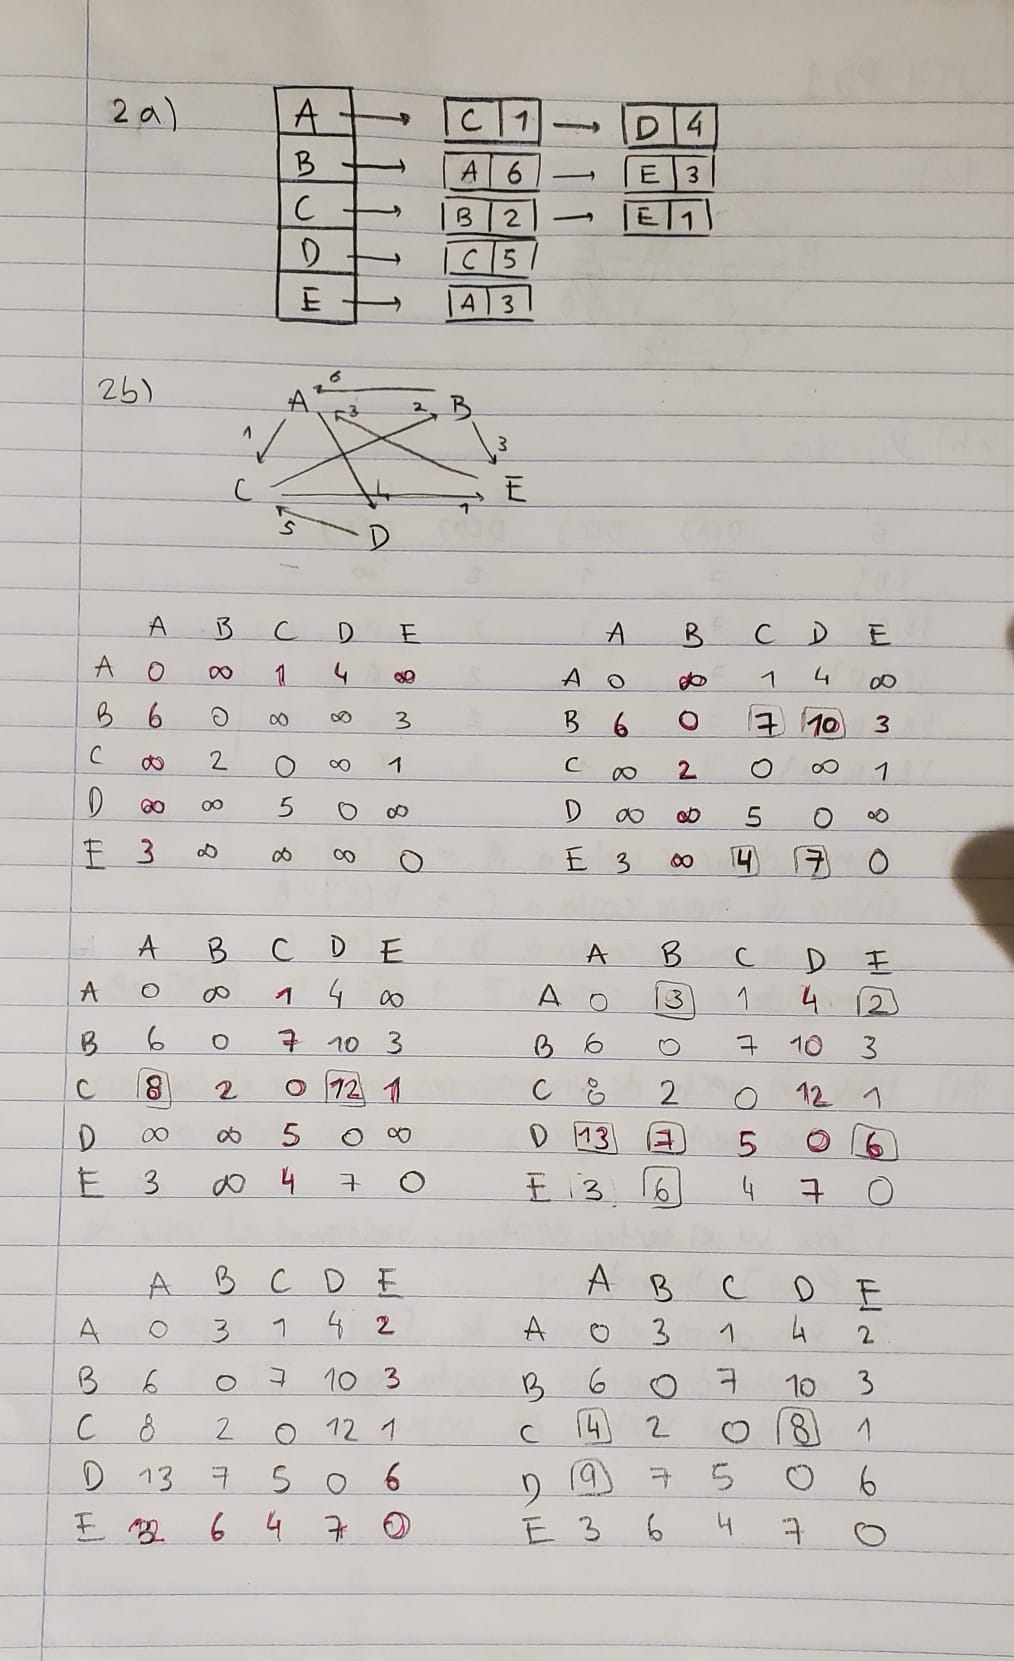 2a)
A → C 1 → D 4
B → A 6 → E 3
C → B 2 → E 1
D → C 5
E → A 3
2b)
6
A 3 2 B
1 3
C 4 E
1
5 D
A B C D E
A 0 ∞ 1 4 ∞
B 6 0 ∞ ∞ 3
C ∞ 2 0 ∞ 1
D ∞ ∞ 5 0 ∞
E 3 ∞ ∞ ∞ 0
A B C D E
A 0 ∞ 1 4 ∞
B 6 0 7 10 3
C ∞ 2 0 ∞ 1
D ∞ ∞ 5 0 ∞
E 3 ∞ 4 7 0
A B C D E
A 0 ∞ 1 4 ∞
B 6 0 7 10 3
C 8 2 0 12 1
D ∞ ∞ 5 0 ∞
E 3 ∞ 4 7 0
A B C D E
A 0 3 1 4 2
B 6 0 7 10 3
C 8 2 0 12 1
D 13 7 5 0 6
E 3 6 4 7 0
A B C D E
A 0 3 1 4 2
B 6 0 7 10 3
C 8 2 0 12 1
D 13 7 5 0 6
E 6 4 7 0
A B C D E
A 0 3 1 4 2
B 6 0 7 10 3
C 4 2 0 8 1
D 9 7 5 0 6
E 3 6 4 7 0